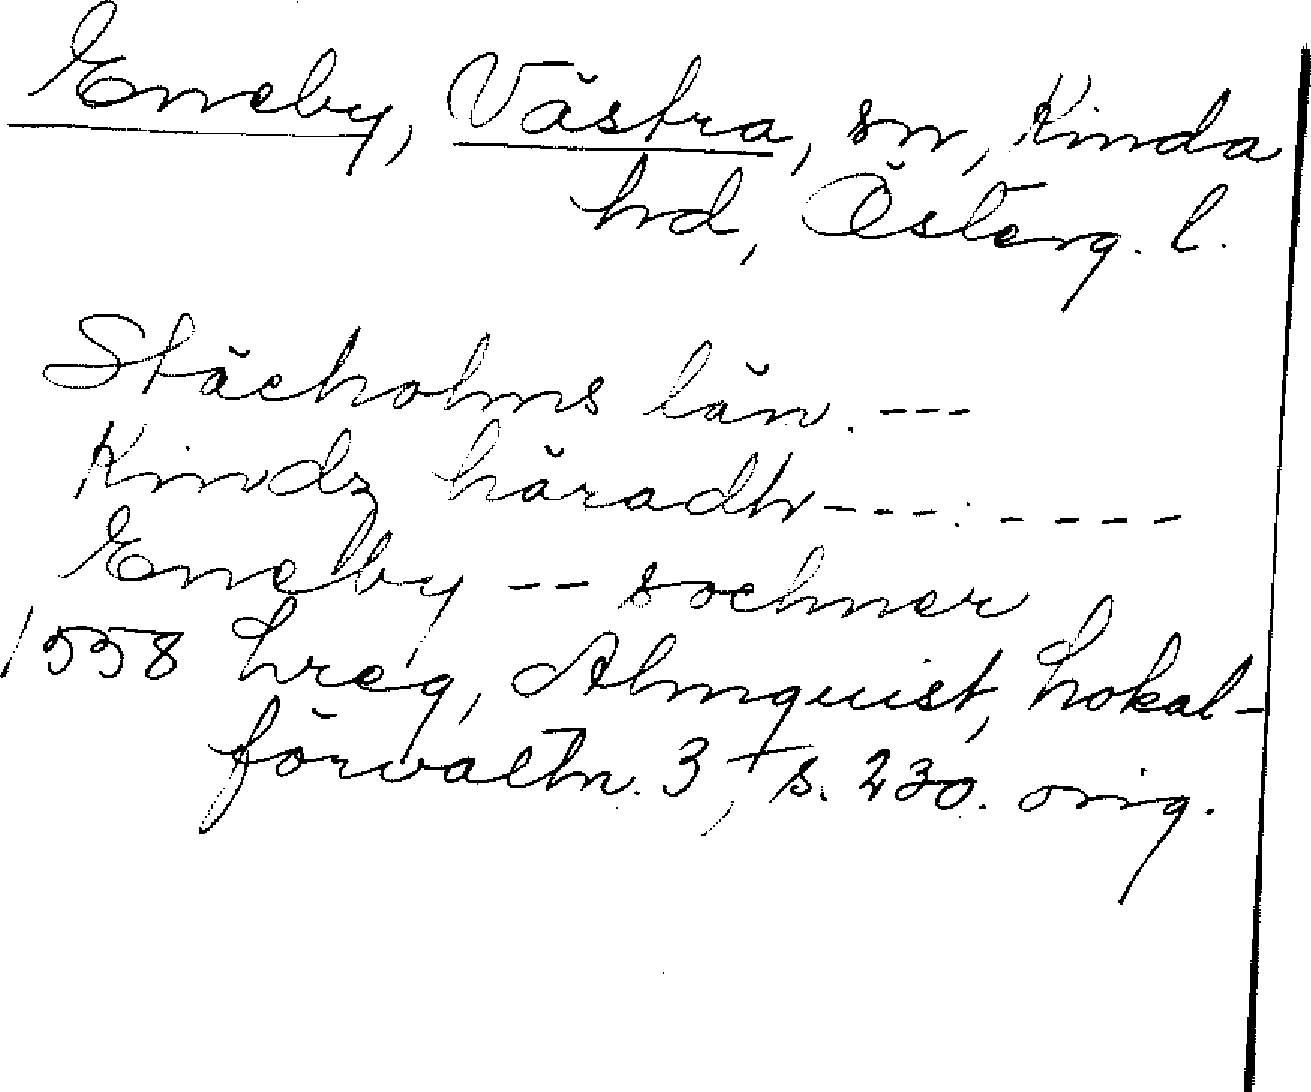 Eneby, Västra, sn, Kinda
hd, Österg. l.
Stächolms län. ---
Kindz häradh ---. ----
Eneby -- sochner
1558 Lreg, Almquist, Lokal-
förvaltn. 3, s. 230. orig.